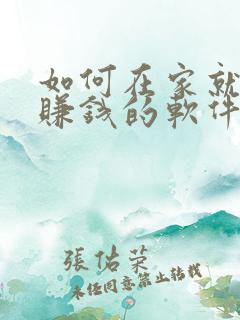 如何在家就
賺錢的軟件
張佑榮
未經同意禁止轉載